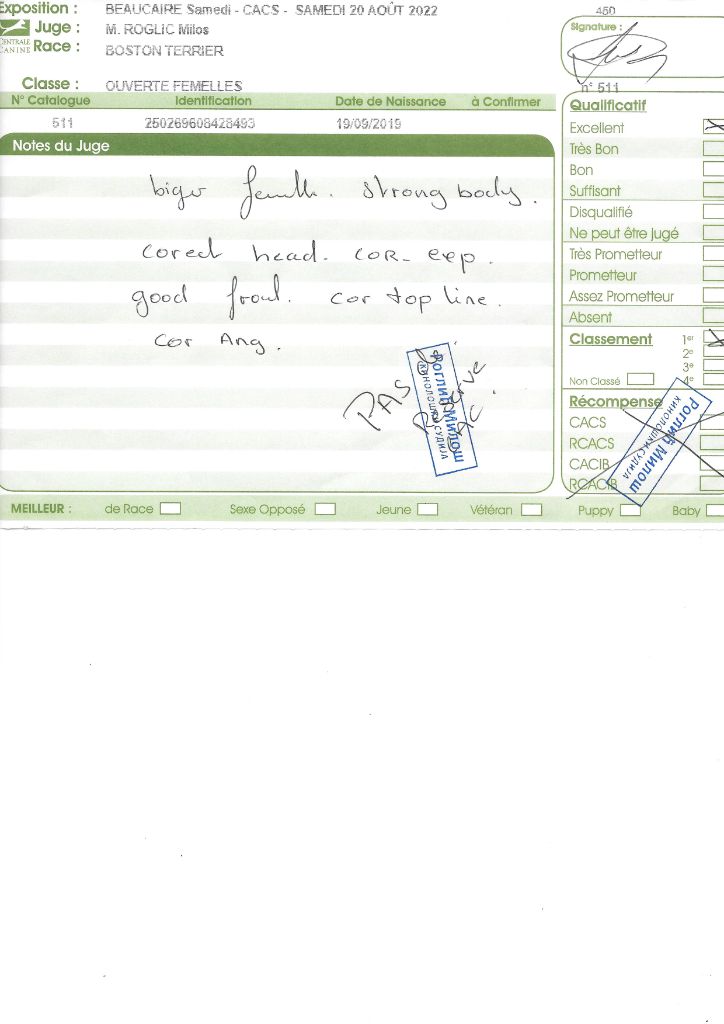 Exposition : BEAUCAIRE Samedi - CACS - SAMEDI 20 AOÛT 2022
Juge : M. ROGLIC Milos
CENTRALE CANINE
Race : BOSTON TERRIER
Classe : OUVERTE FEMELLES
450
Signature :
n° 511
N° Catalogue Identification Date de Naissance à Confirmer
511 250269608428493 19/09/2019
Notes du Juge
strong body.
corect head. COR- exp.
good cor top line.
cor Ang.
PAS
Роглић Милош
КИНОЛОШКИ СУДИЈА
Qualificatif
Excellent
Très Bon
Bon
Suffisant
Disqualifié
Ne peut être jugé
Très Prometteur
Prometteur
Assez Prometteur
Absent
Classement 1er
2e
3e
Non Classé 4e
Récompense
CACS
RCACS
CACIB
RCACIB
Роглић Милош
КИНОЛОШКИ СУДИЈА
MEILLEUR : de Race Sexe Opposé Jeune Vétéran Puppy Baby